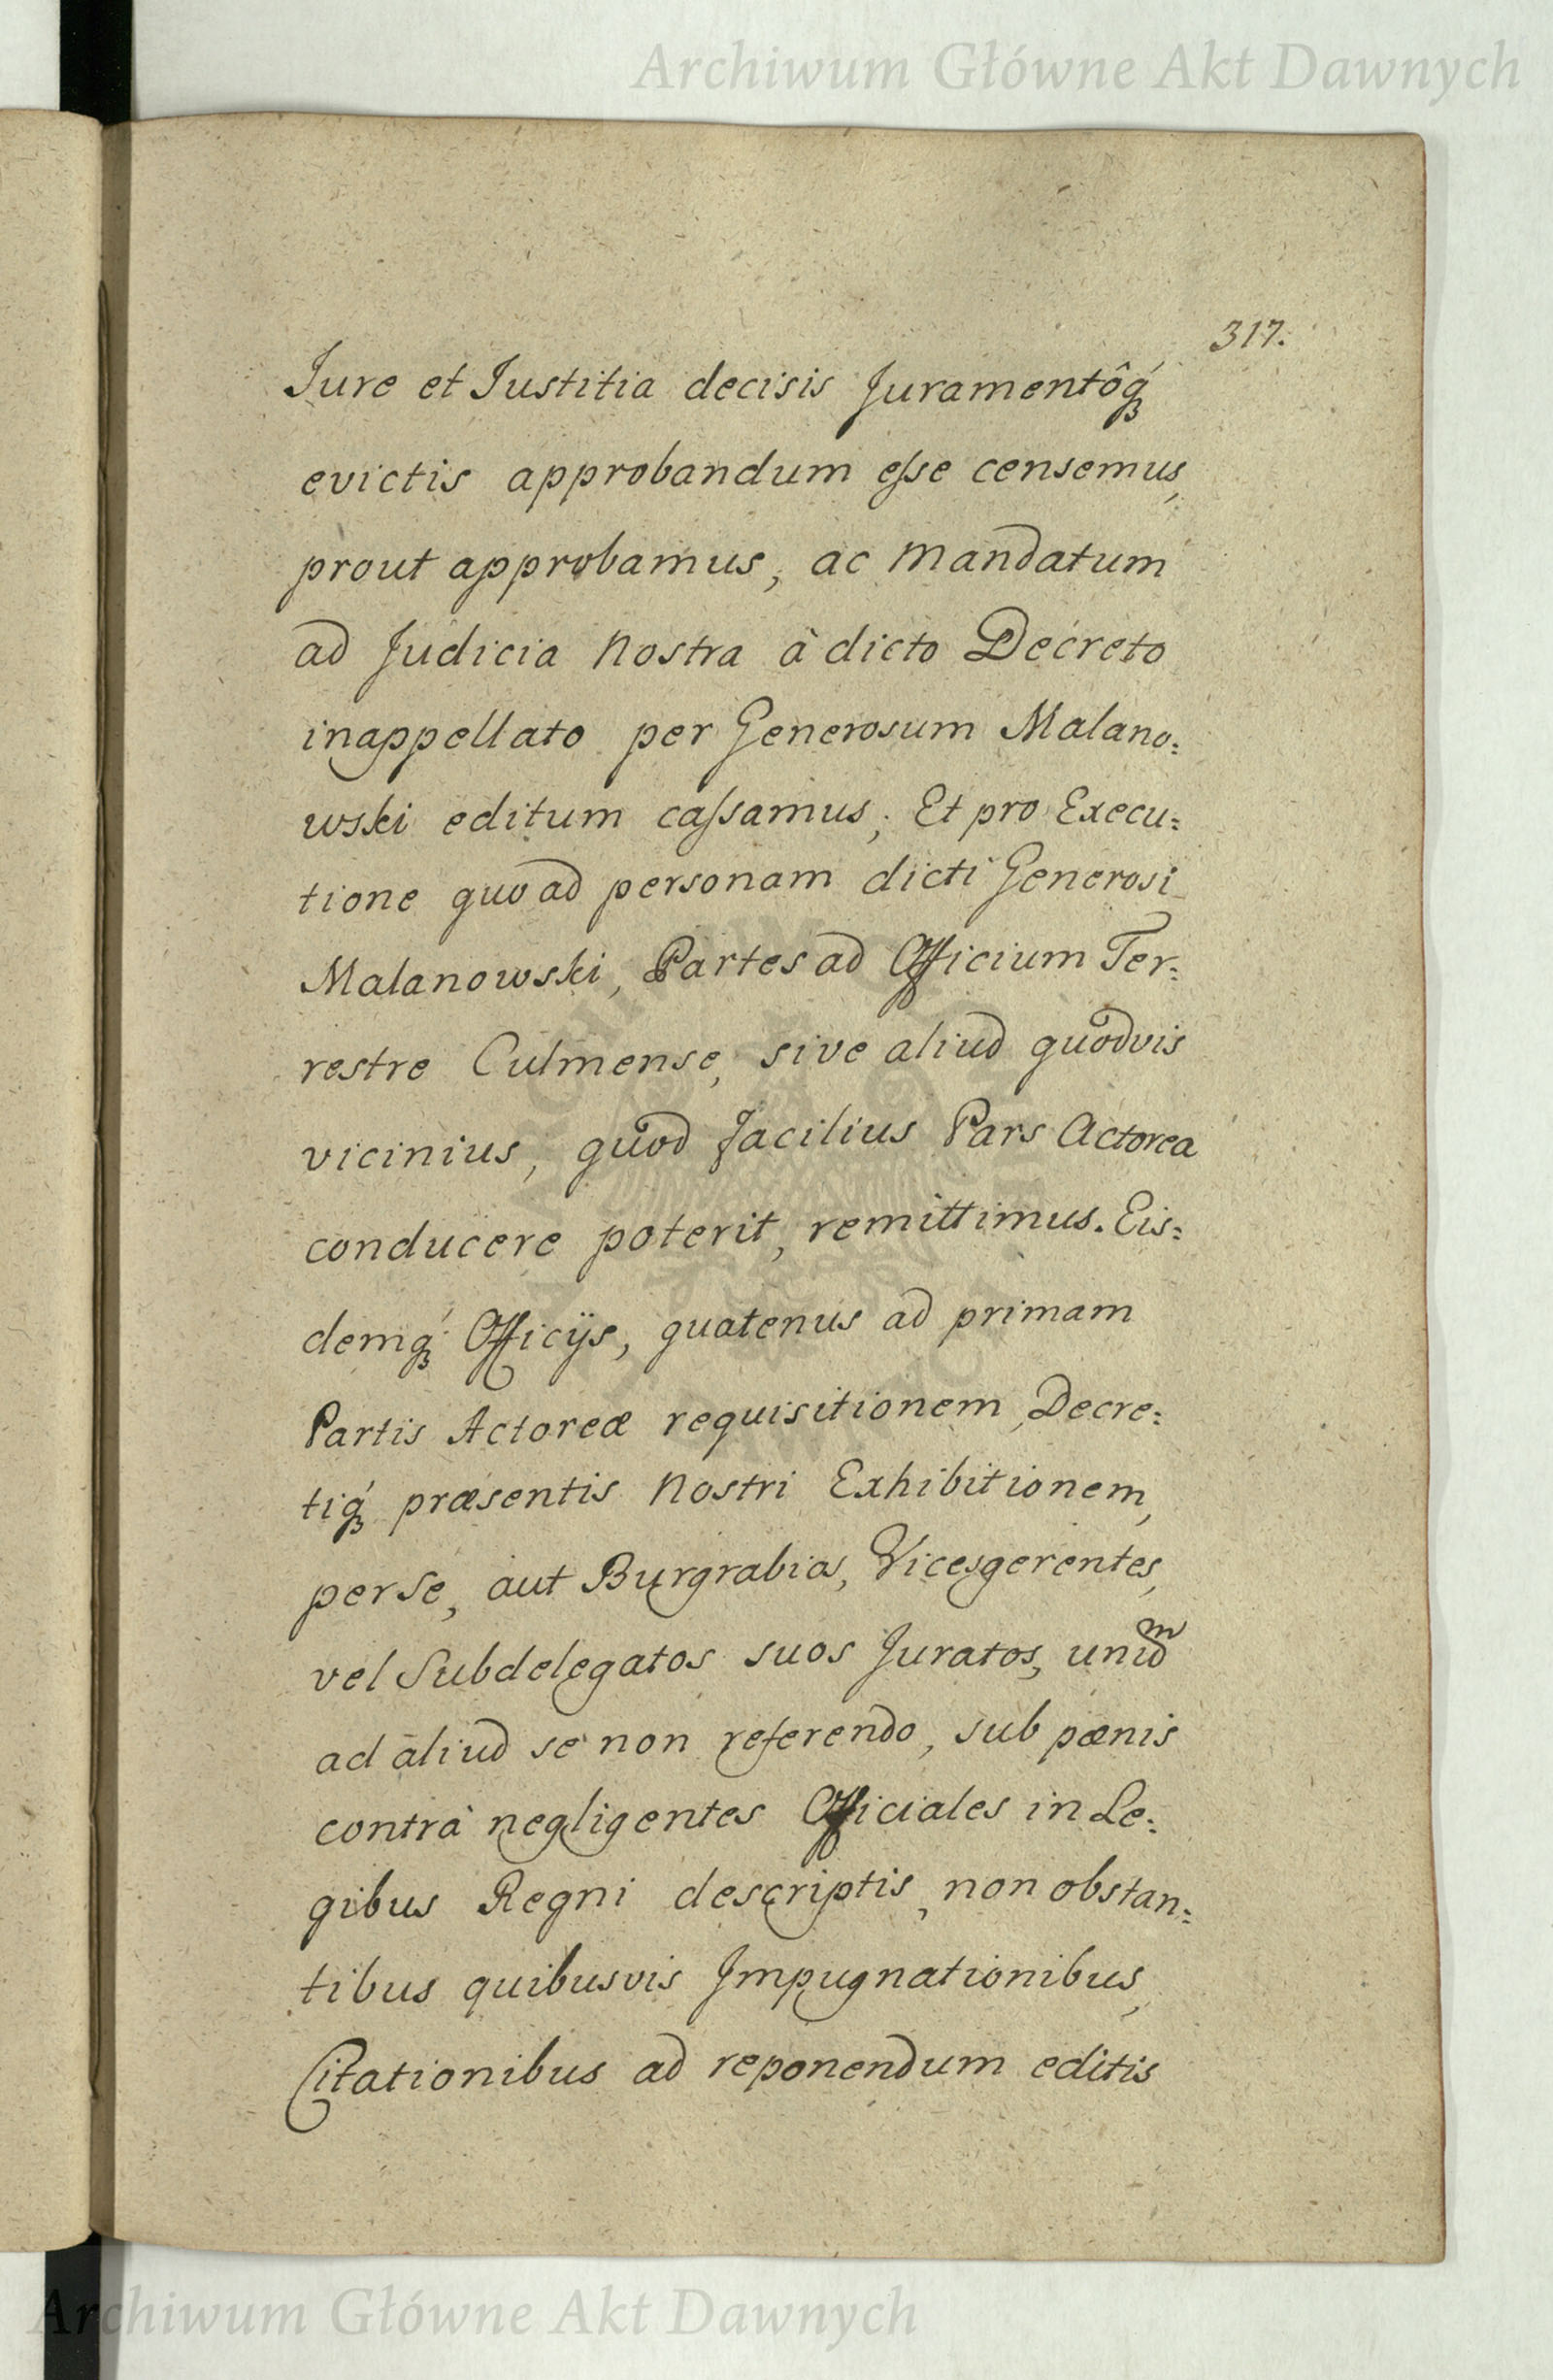 Archiwum Główne Akt Dawnych
317.
Jure et Justitia decisis Juramentôq́
evictis approbandum eſse censemus,
prout approbamus, ac Mandatum
ad Judicia Nostra à dicto Decreto
inappellato per Generosum Malano:
wski editum caſsamus; Et pro Execu:
tione quo ad personam dicti Generosi
Malanowski, Partes ad Officium Ter:
restre Culmense, sive aliud quodvis
vicinius, quod facilius Pars Actorea
conducere poterit, remittimus. Eis:
demq́ Officijs, quatenus ad primam
Partis Actoreæ requisitionem, Decre:
tiq́ præsentis Nostri Exhibitionem,
per se, aut Burgrabios, Vicesgerentes,
vel Subdelegatos suos Juratos, unũ
ad aliud se non referendo, sub pœnis
contrà negligentes Officiales in Le:
gibus Regni descriptis, non obstan:
tibus quibusvis Impugnationibus,
Citationibus ad reponendum editis
Archiwum Główne Akt Dawnych